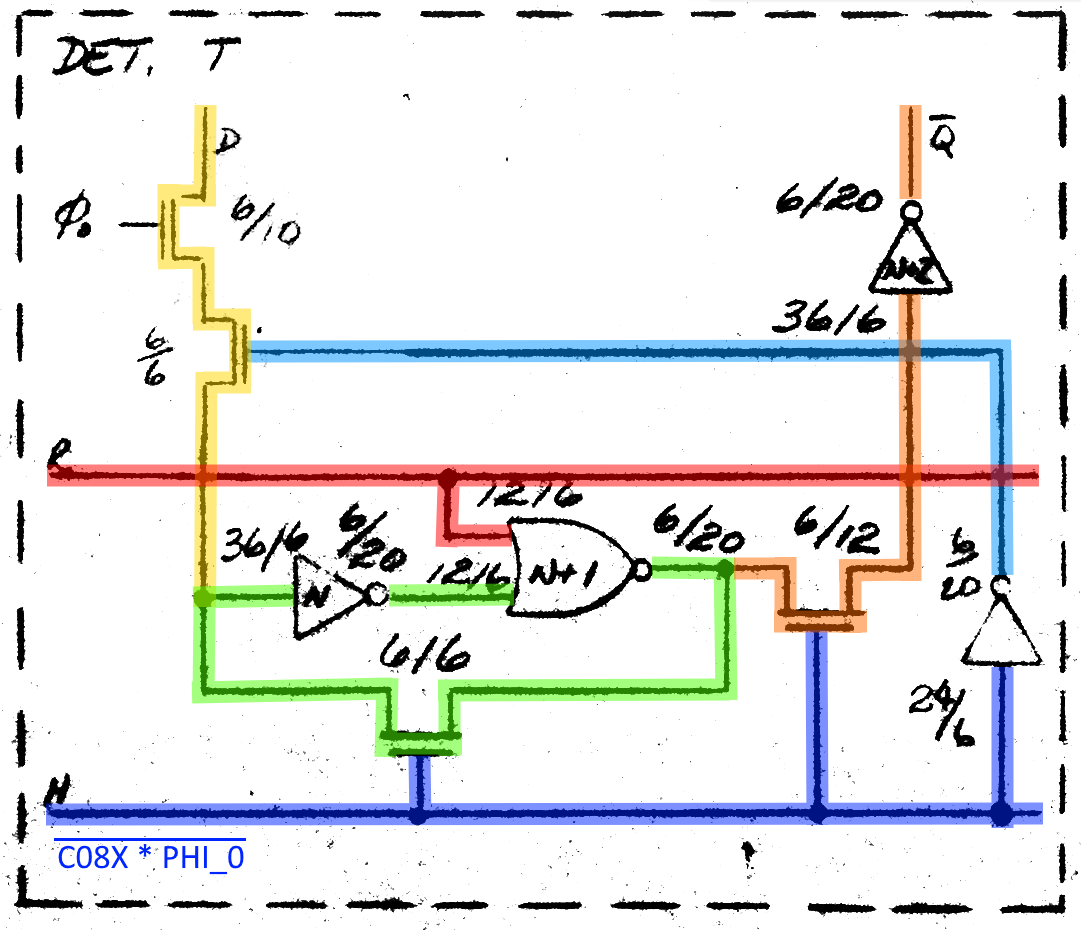 DET. T
D
Q̅
φ₀
6/10
6/20
N+2
36/6
6/6
R
12/6
36/6
6/20
N
12/6
N+1
6/20
6/12
6/20
6/6
24/6
H
C08X * PHI_0